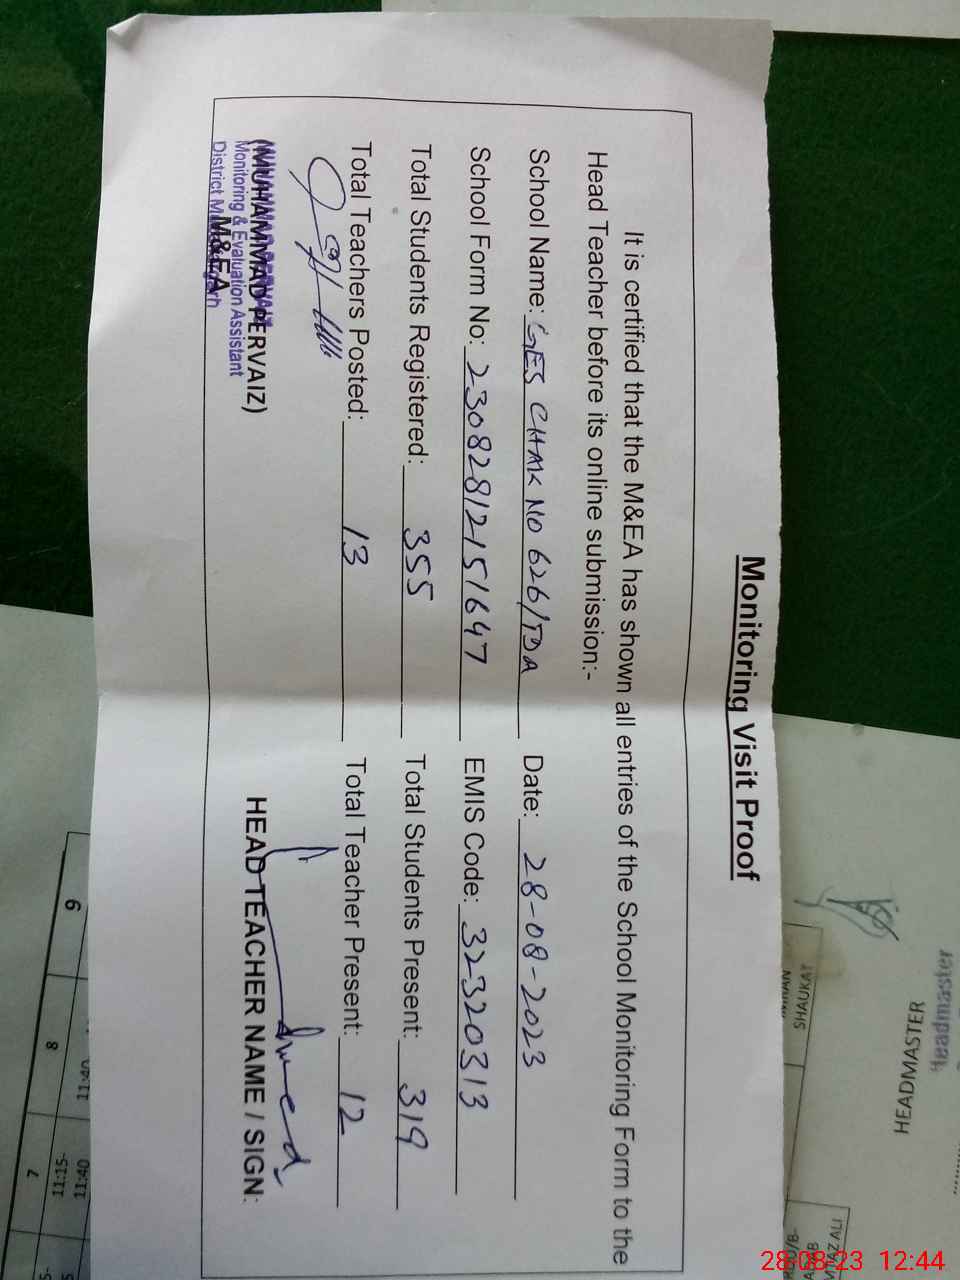 Monitoring Visit Proof
It is certified that the M&EA has shown all entries of the School Monitoring Form to the
Head Teacher before its online submission:-
School Name: GES CHAK NO 626/TDA Date: 28-08-2023
School Form No: 23082812151647 EMIS Code: 32320313
Total Students Registered: 355 Total Students Present: 319
Total Teachers Posted: 13 Total Teacher Present: 12
(MUHAMMAD PERVAIZ)
Monitoring & Evaluation Assistant
M&EA
District
HEAD TEACHER NAME / SIGN:
HEADMASTER
Headmaster
SHAUKAT
AZ ALI
6
8
7
11:15-
11:40
28-08-23 12:44